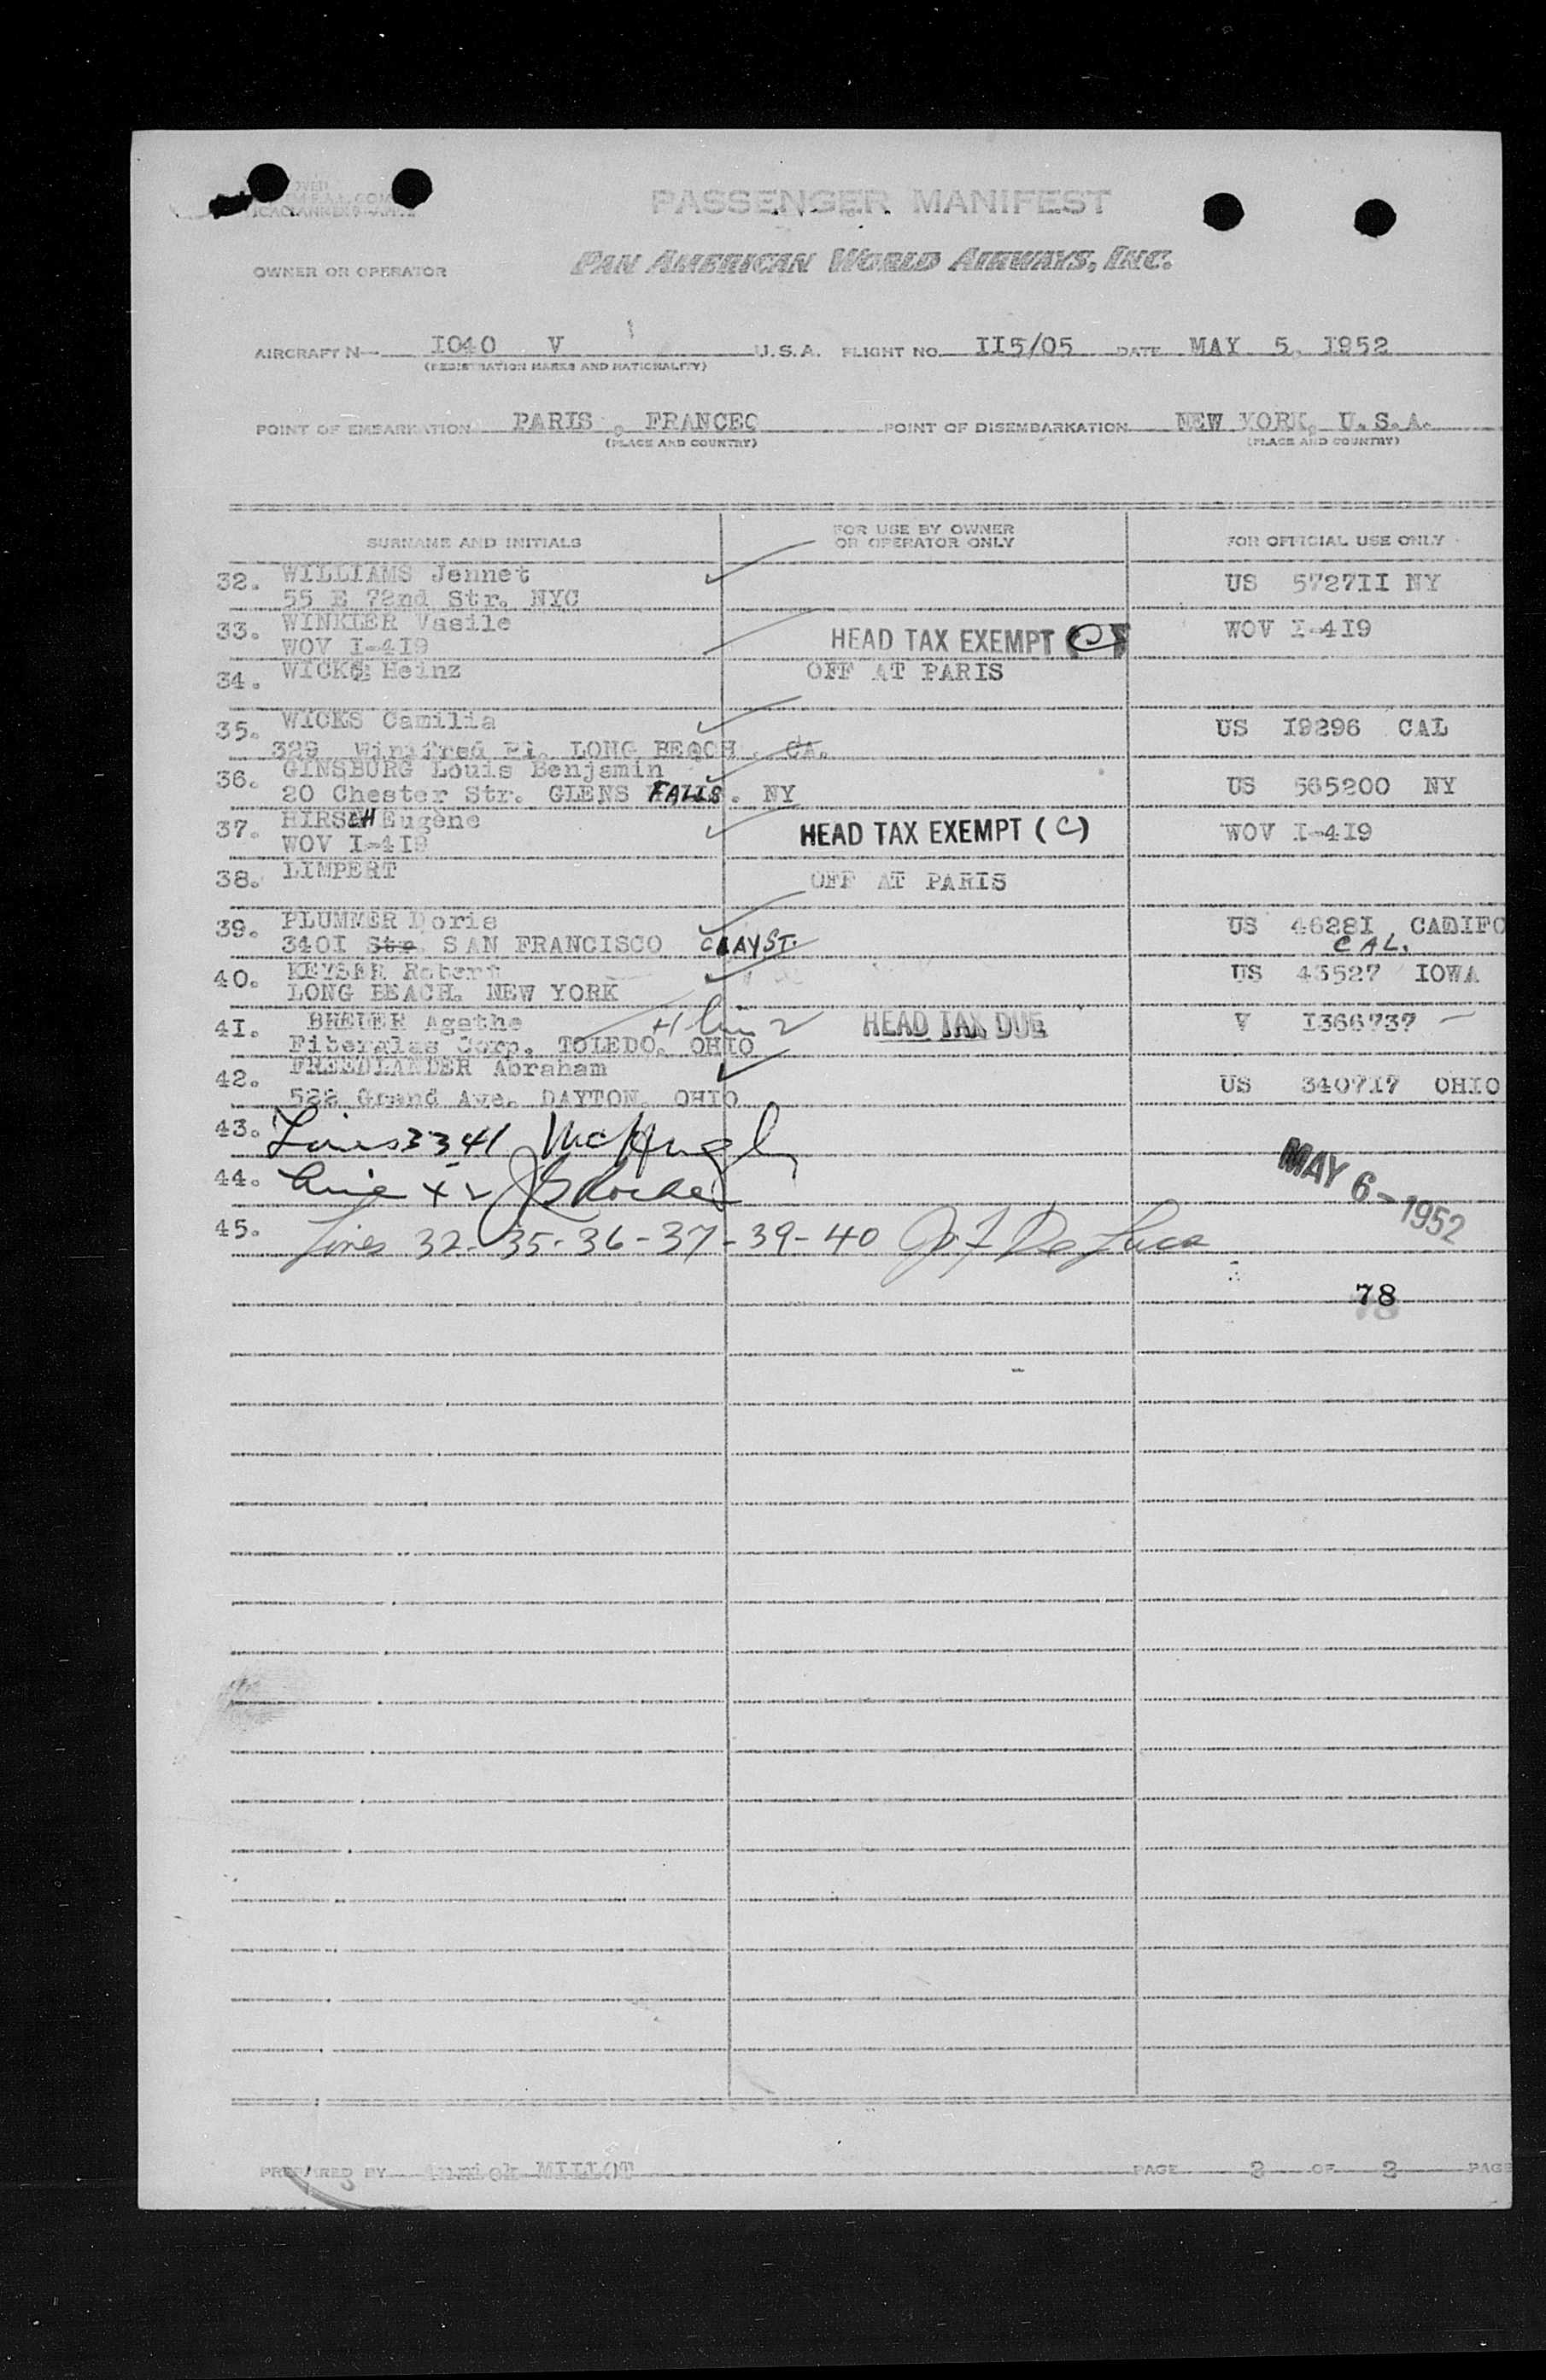 PASSENGER MANIFEST
OWNER OR OPERATOR PAN AMERICAN WORLD AIRWAYS, INC.
AIRCRAFT N I040 V U.S.A. FLIGHT NO. II5/05 DATE MAY 5, I952
(REGISTRATION MARKS AND NATIONALITY)
POINT OF EMBARKATION PARIS , FRANCEC POINT OF DISEMBARKATION NEW YORK, U.S.A.
(PLACE AND COUNTRY) (PLACE AND COUNTRY)
SURNAME AND INITIALS FOR USE BY OWNER OR OPERATOR ONLY FOR OFFICIAL USE ONLY
32. WILLIAMS Jennet US 5727II NY
55 E 72nd Str. NYC
33. WINKLER Vasile HEAD TAX EXEMPT (C) WOV I-4I9
WOV I-4I9
34. WICKS Heinz OFF AT PARIS
35. WICKS Camilia US I9296 CAL
329 Winifred Pl. LONG BEQCH . CA.
36. GINSBURG Louis Benjamin US 565200 NY
20 Chester Str. GLENS FALLS. NY
37. HIRSCH Eugène HEAD TAX EXEMPT (C) WOV I-4I9
WOV I-4I9
38. LIMPERT OFF AT PARIS
39. PLUMMER Doris US 4628I CADIFO
340I Str. SAN FRANCISCO CLAY ST. CAL.
40. KEYSER Robert US 43527 IOWA
LONG BEACH. NEW YORK
41. BREUER Agathe HEAD TAX DUE V I366737
Fiberglas Corp. TOLEDO. OHIO
42. FREEDLANDER Abraham US 3407I7 OHIO
522 Grand Ave. DAYTON. OHIO
43. Lines 33 41 McHugh
44. Line 42
45. Lines 32-35-36-37-39-40 J F De Luca
MAY 6-1952
78
PREPARED BY Annick MILLOT PAGE 2 OF 2 PAGE